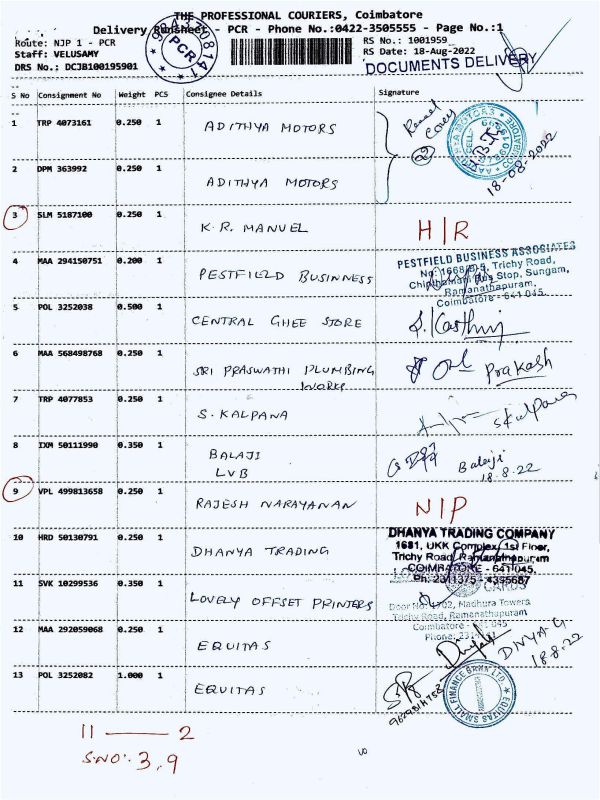 THE PROFESSIONAL COURIERS, Coimbatore
Delivery Runsheet - PCR - Phone No.:0422-3505555 - Page No.:1
Route: NJP 1 - PCR
RS No.: 1001959
Staff: VELUSAMY
RS Date: 18-Aug-2022
DRS No.: DCJB100195901
PCR
DOCUMENTS DELIVERY
S No Consignment No Weight PCS Consignee Details Signature
1 TRP 4073161 0.250 1 ADITHYA MOTORS
18-08-2022
2 DPM 363992 0.250 1 ADITHYA MOTORS
3 SLM 5187100 0.250 1 K.R. MANUEL H|R
4 MAA 294150751 0.200 1 PESTFIELD BUSINNESS
PESTFIELD BUSINESS ASSOCIATES
No: 1668/B-5, Trichy Road,
Bus Stop, Sungam,
Ramanathapuram,
Coimbatore - 641 045.
5 POL 3252038 0.500 1 CENTRAL GHEE STORE
6 MAA 568498768 0.250 1 SRI PRASWATHI PLUMBING WORKS Prakash
7 TRP 4077853 0.250 1 S. KALPANA Skalpana
8 IXM 50111990 0.350 1 BALAJI LVB Balaji
18.8.22
9 VPL 499813658 0.250 1 RAJESH NARAYANAN N|P
10 HRD 50130791 0.250 1 DHANYA TRADING
DHANYA TRADING COMPANY
1681, UKK Complex, 1st Floor,
Trichy Road, Ramanathapuram
COIMBATORE - 641 045.
11 SVK 10299536 0.350 1 LOVELY OFFSET PRINTERS
CARDS
Madhura Towers
Trichy Road, Ramanathapuram
Coimbatore - 641 045
12 MAA 292059068 0.250 1 EQUITAS
DIVYA G
18.8.22
13 POL 3252082 1.000 1 EQUITAS
EQUITAS SMALL FINANCE BANK LTD
11 — 2
S.NO: 3, 9